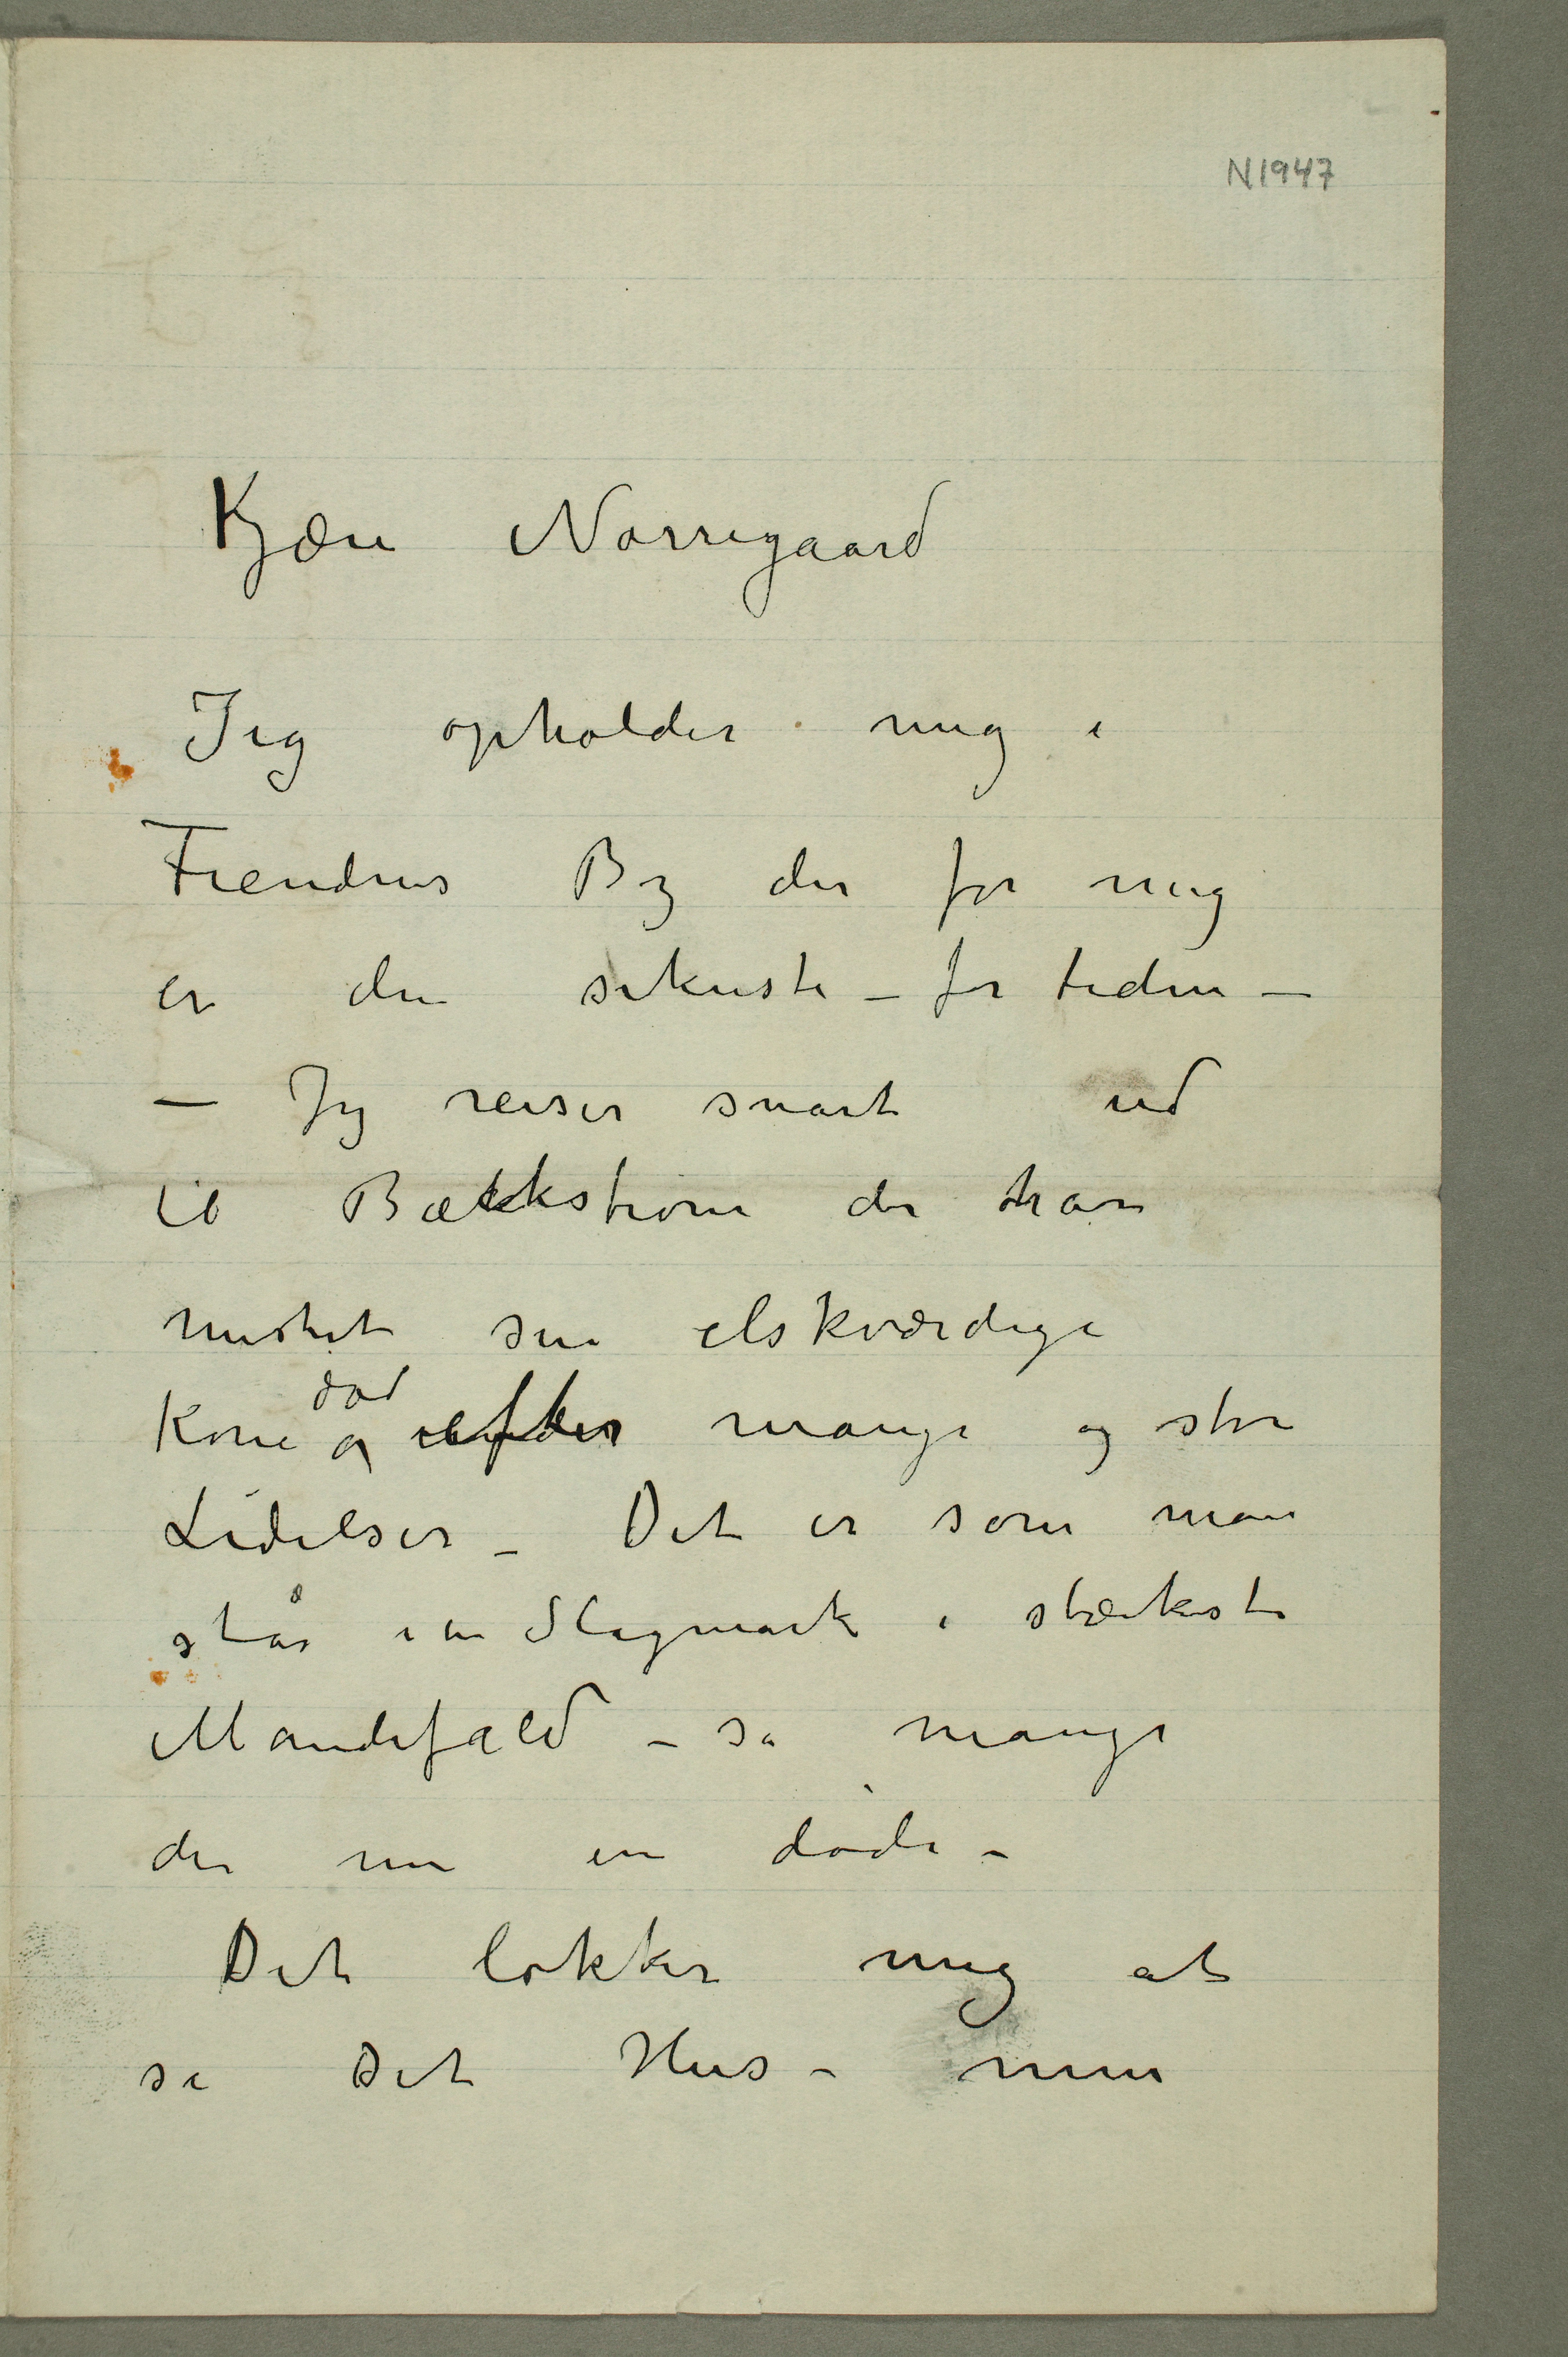 N1947
Kjære Nørregaard
Jeg opholder mig i
Fiendens By der for mig
er den sikreste – for tiden –
– Jeg reiser snart ud
til Bækkstrøm der har
mistet sin elskværdige
død
Kone og efter mange og store
Lidelser – Det er som man
står i en Slagmark i stærkeste
Mandefald – så mange
der nu er døde –
Det lokker mig at
se Det Hus – men